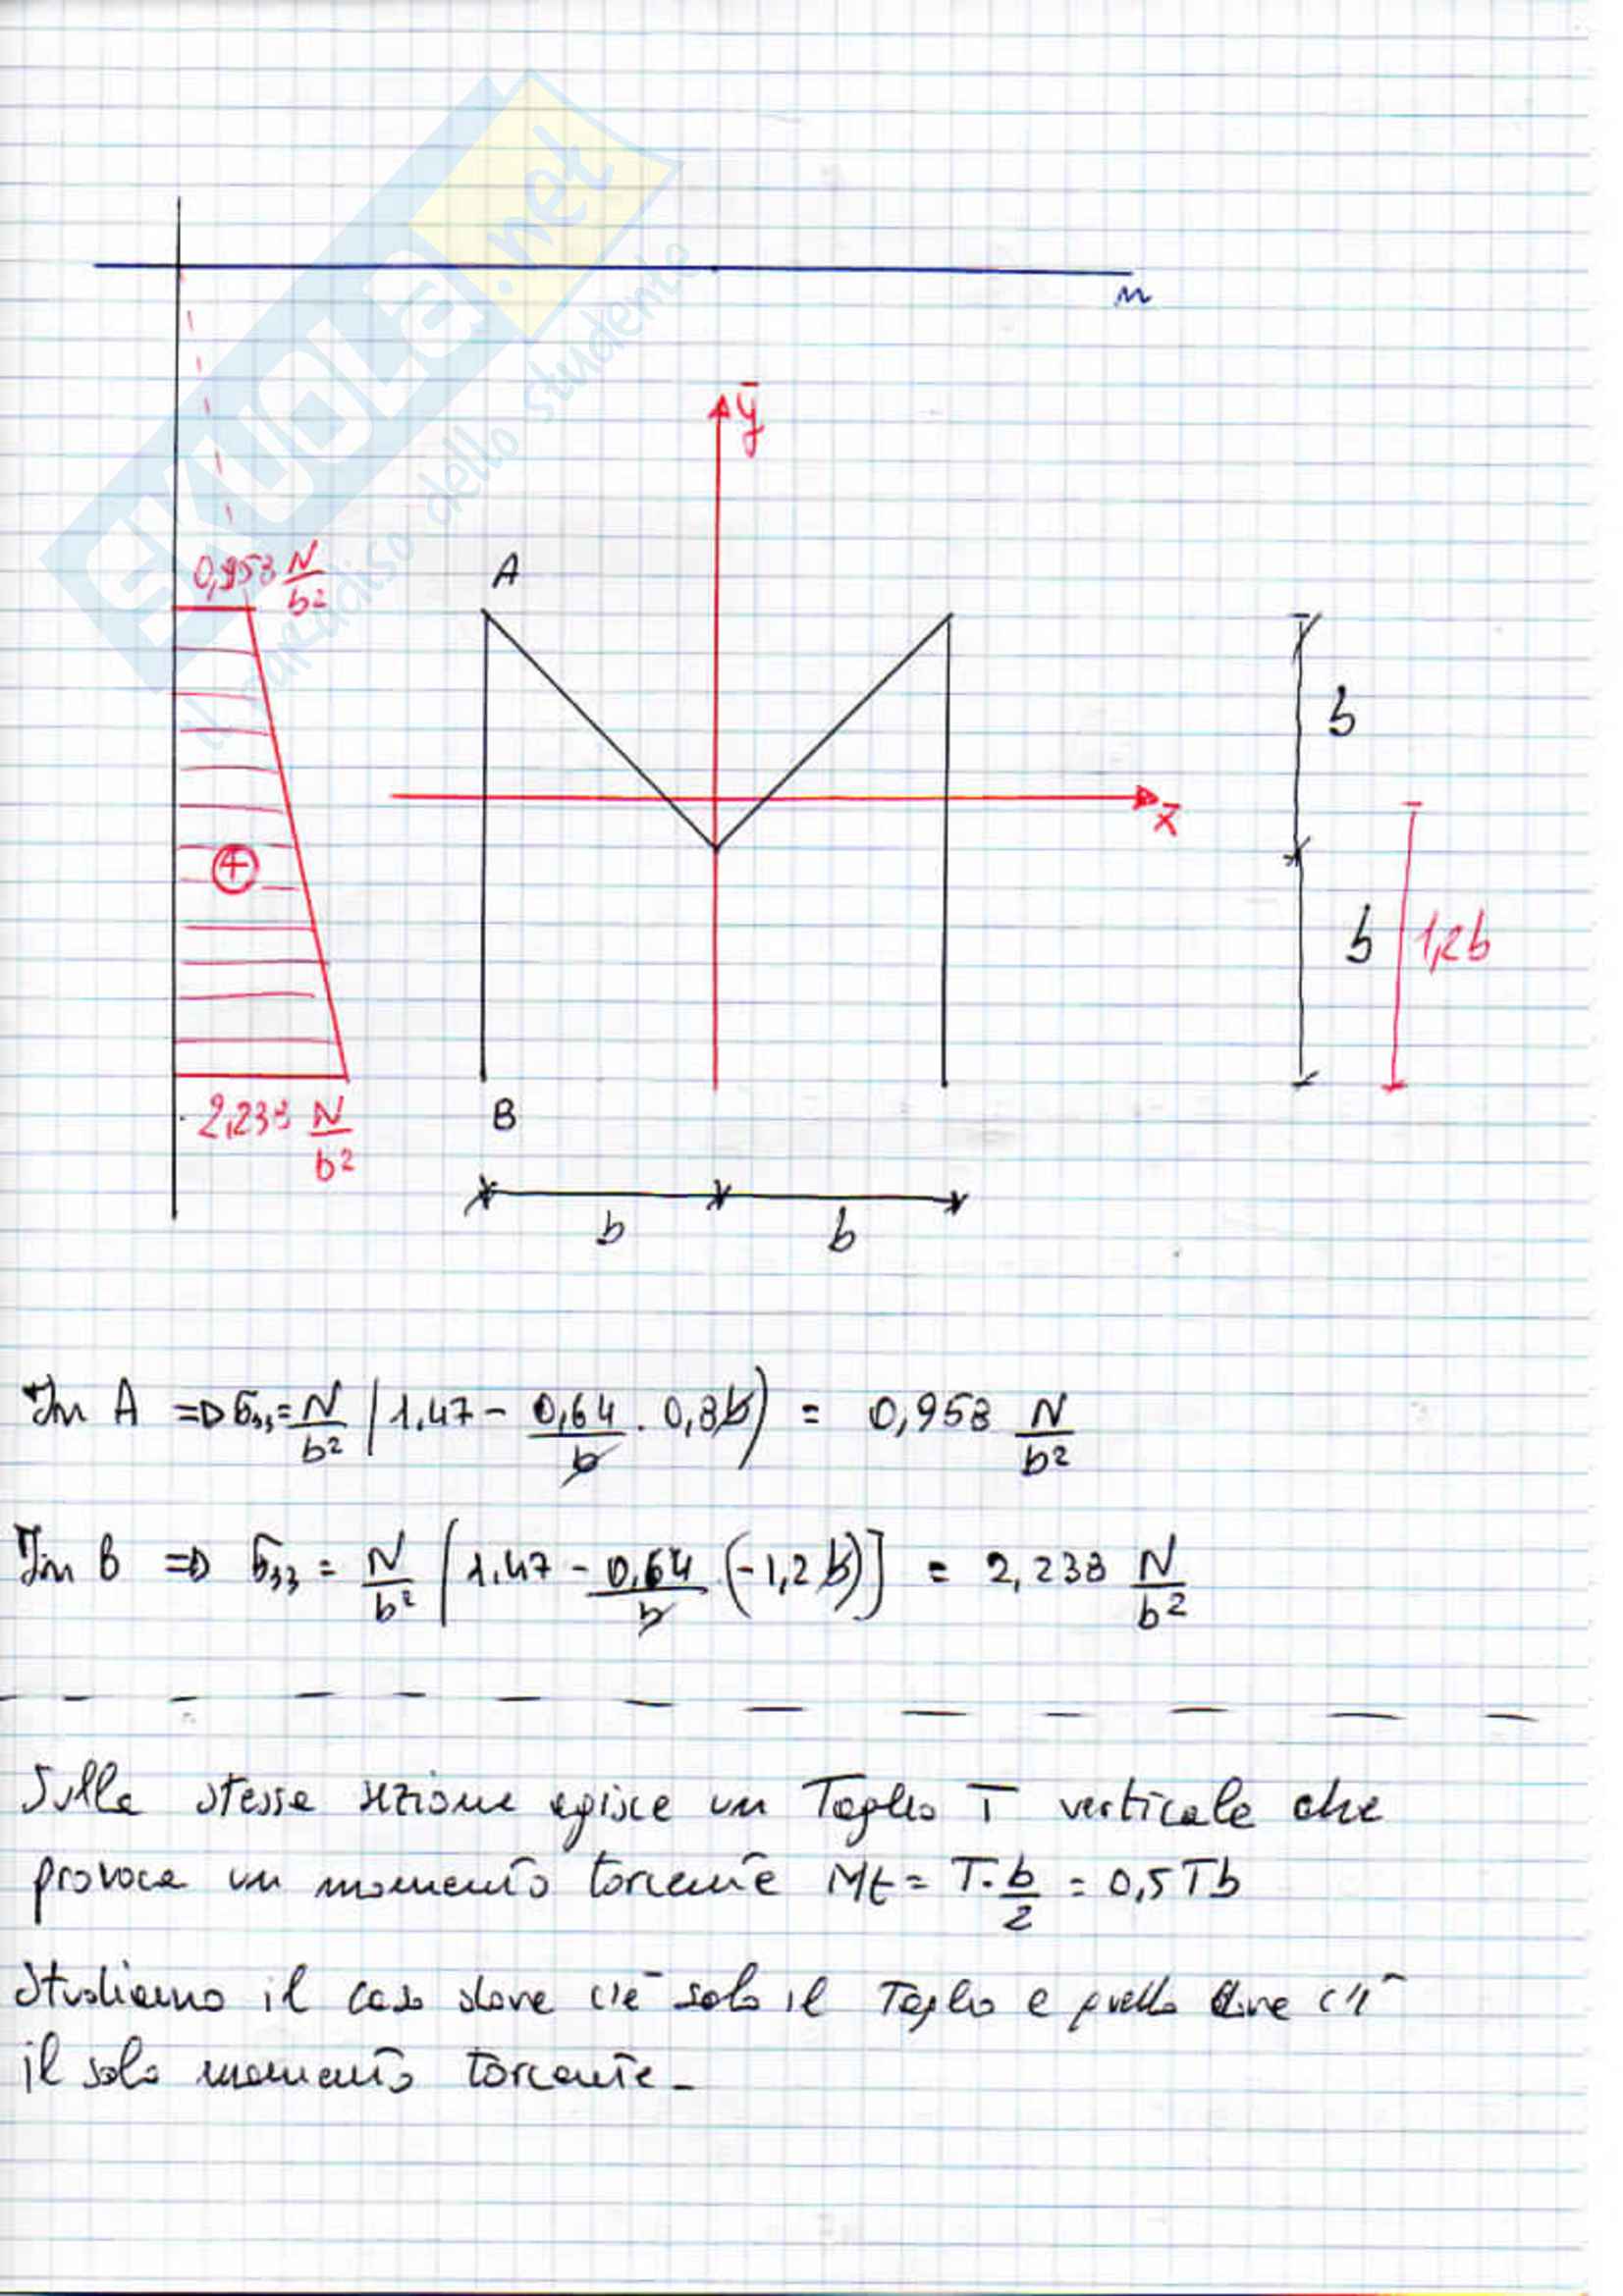 SKUOLA.net
il paradiso dello studente
n
ȳ
0,958 N/b²
A
x̄
b
b
1,2b
+
B
2,238 N/b²
b
b
In A => σ₃₃ = N/b² (1.47 - 0,64/b · 0,8b) = 0,958 N/b²
In B => σ₃₃ = N/b² [1.47 - 0,64/b (-1,2b)] = 2,238 N/b²
Sulla stessa sezione agisce un Taglio T verticale che
provoca un momento torcente Mt = T·b/2 = 0,5Tb
Studiamo il caso dove c'è solo il Taglio e quello dove c'è
il solo momento torcente-